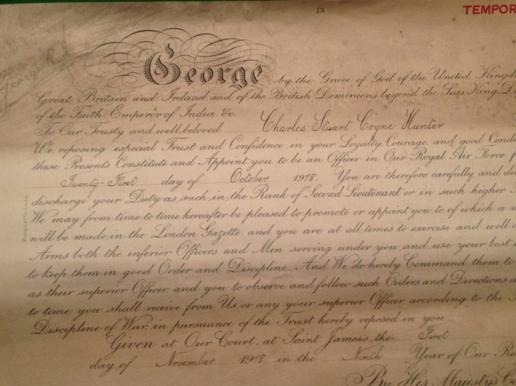 TEMPOR
George R.I.
George by the Grace of God of the United Kingd
Great Britain and Ireland and of the British Dominions beyond the Seas King, D
of the Faith Emperor of India &c
To Our Trusty and well beloved Charles Stuart Coyne Hunter
We reposing especial Trust and Confidence in your Loyalty Courage and good Cond
these Presents Constitute and Appoint you to be an Officer in Our Royal Air Force f
Twenty-First day of October 1918. You are therefore carefully and d
discharge your Duty as such in the Rank of Second Lieutenant or in such higher
We may from time to time hereafter be pleased to promote or appoint you to of which a n
will be made in the London Gazette and you are at all times to exercise and well d
Arms both the inferior Officers and Men serving under you and use your best
to keep them in good Order and Discipline. And We do hereby Command them to
as their superior Officer and you to observe and follow such Orders and Directions a
to time you shall receive from Us or any your superior Officer according to the
Discipline of War in pursuance of the Trust hereby reposed in you
Given at Our Court, at Saint James's the First
day of November 1918 in the Ninth Year of Our R
By His Majesty's C